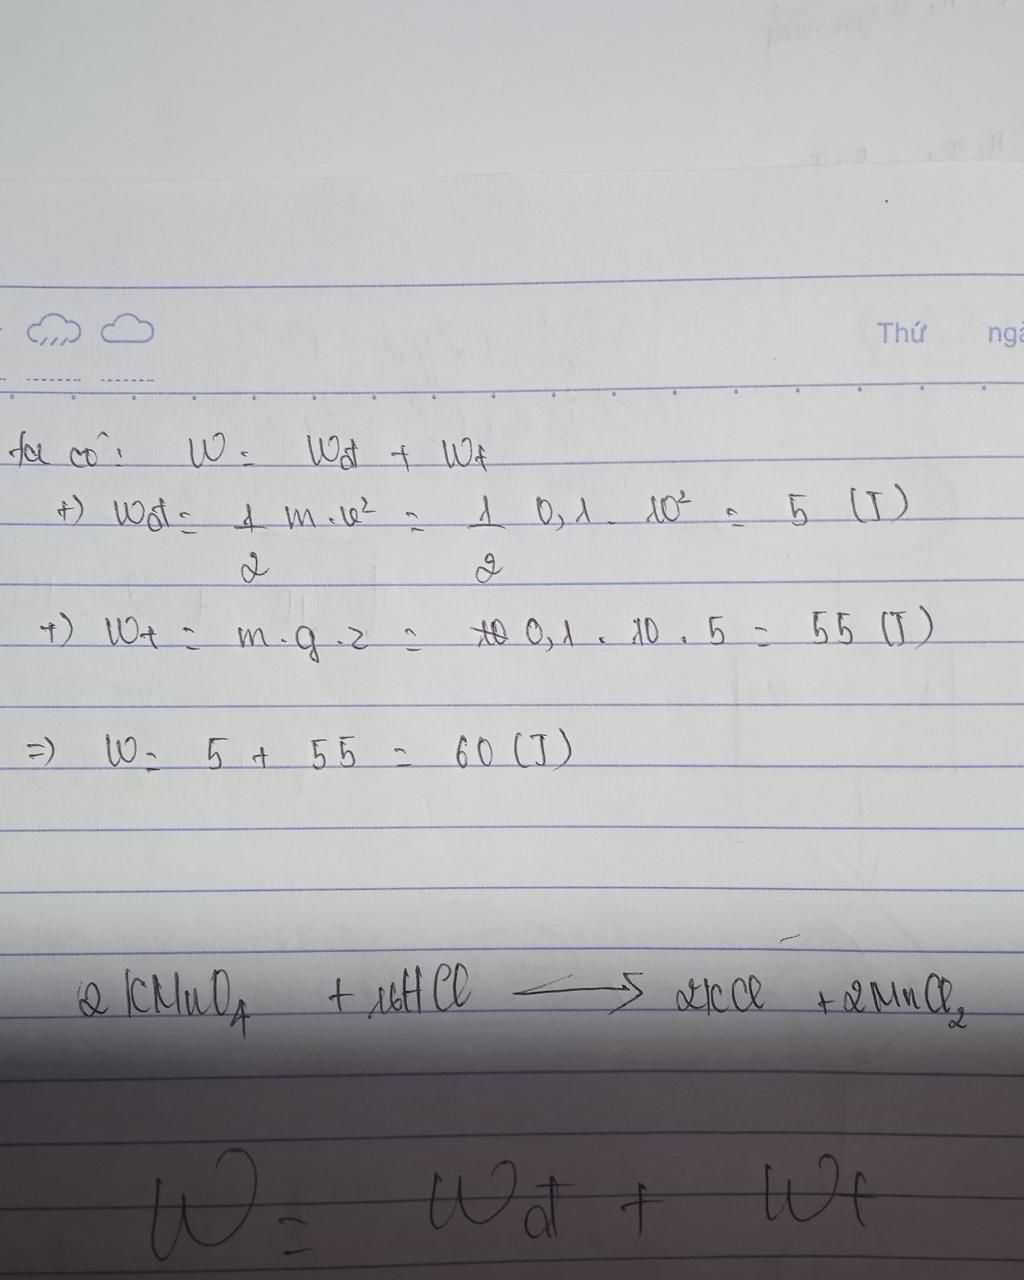 Thứ
ta có: W = Wđ + Wt
+) Wđ = 1/2 m.v² = 1/2 0,1 . 10² = 5 (J)
+) Wt = m.g.z = 0,1 . 10 . 5 = 55 (J)
=) W = 5 + 55 = 60 (J)
2KMnO₄ + 16HCl → 2KCl + 2MnCl₂
W = Wđ + Wt